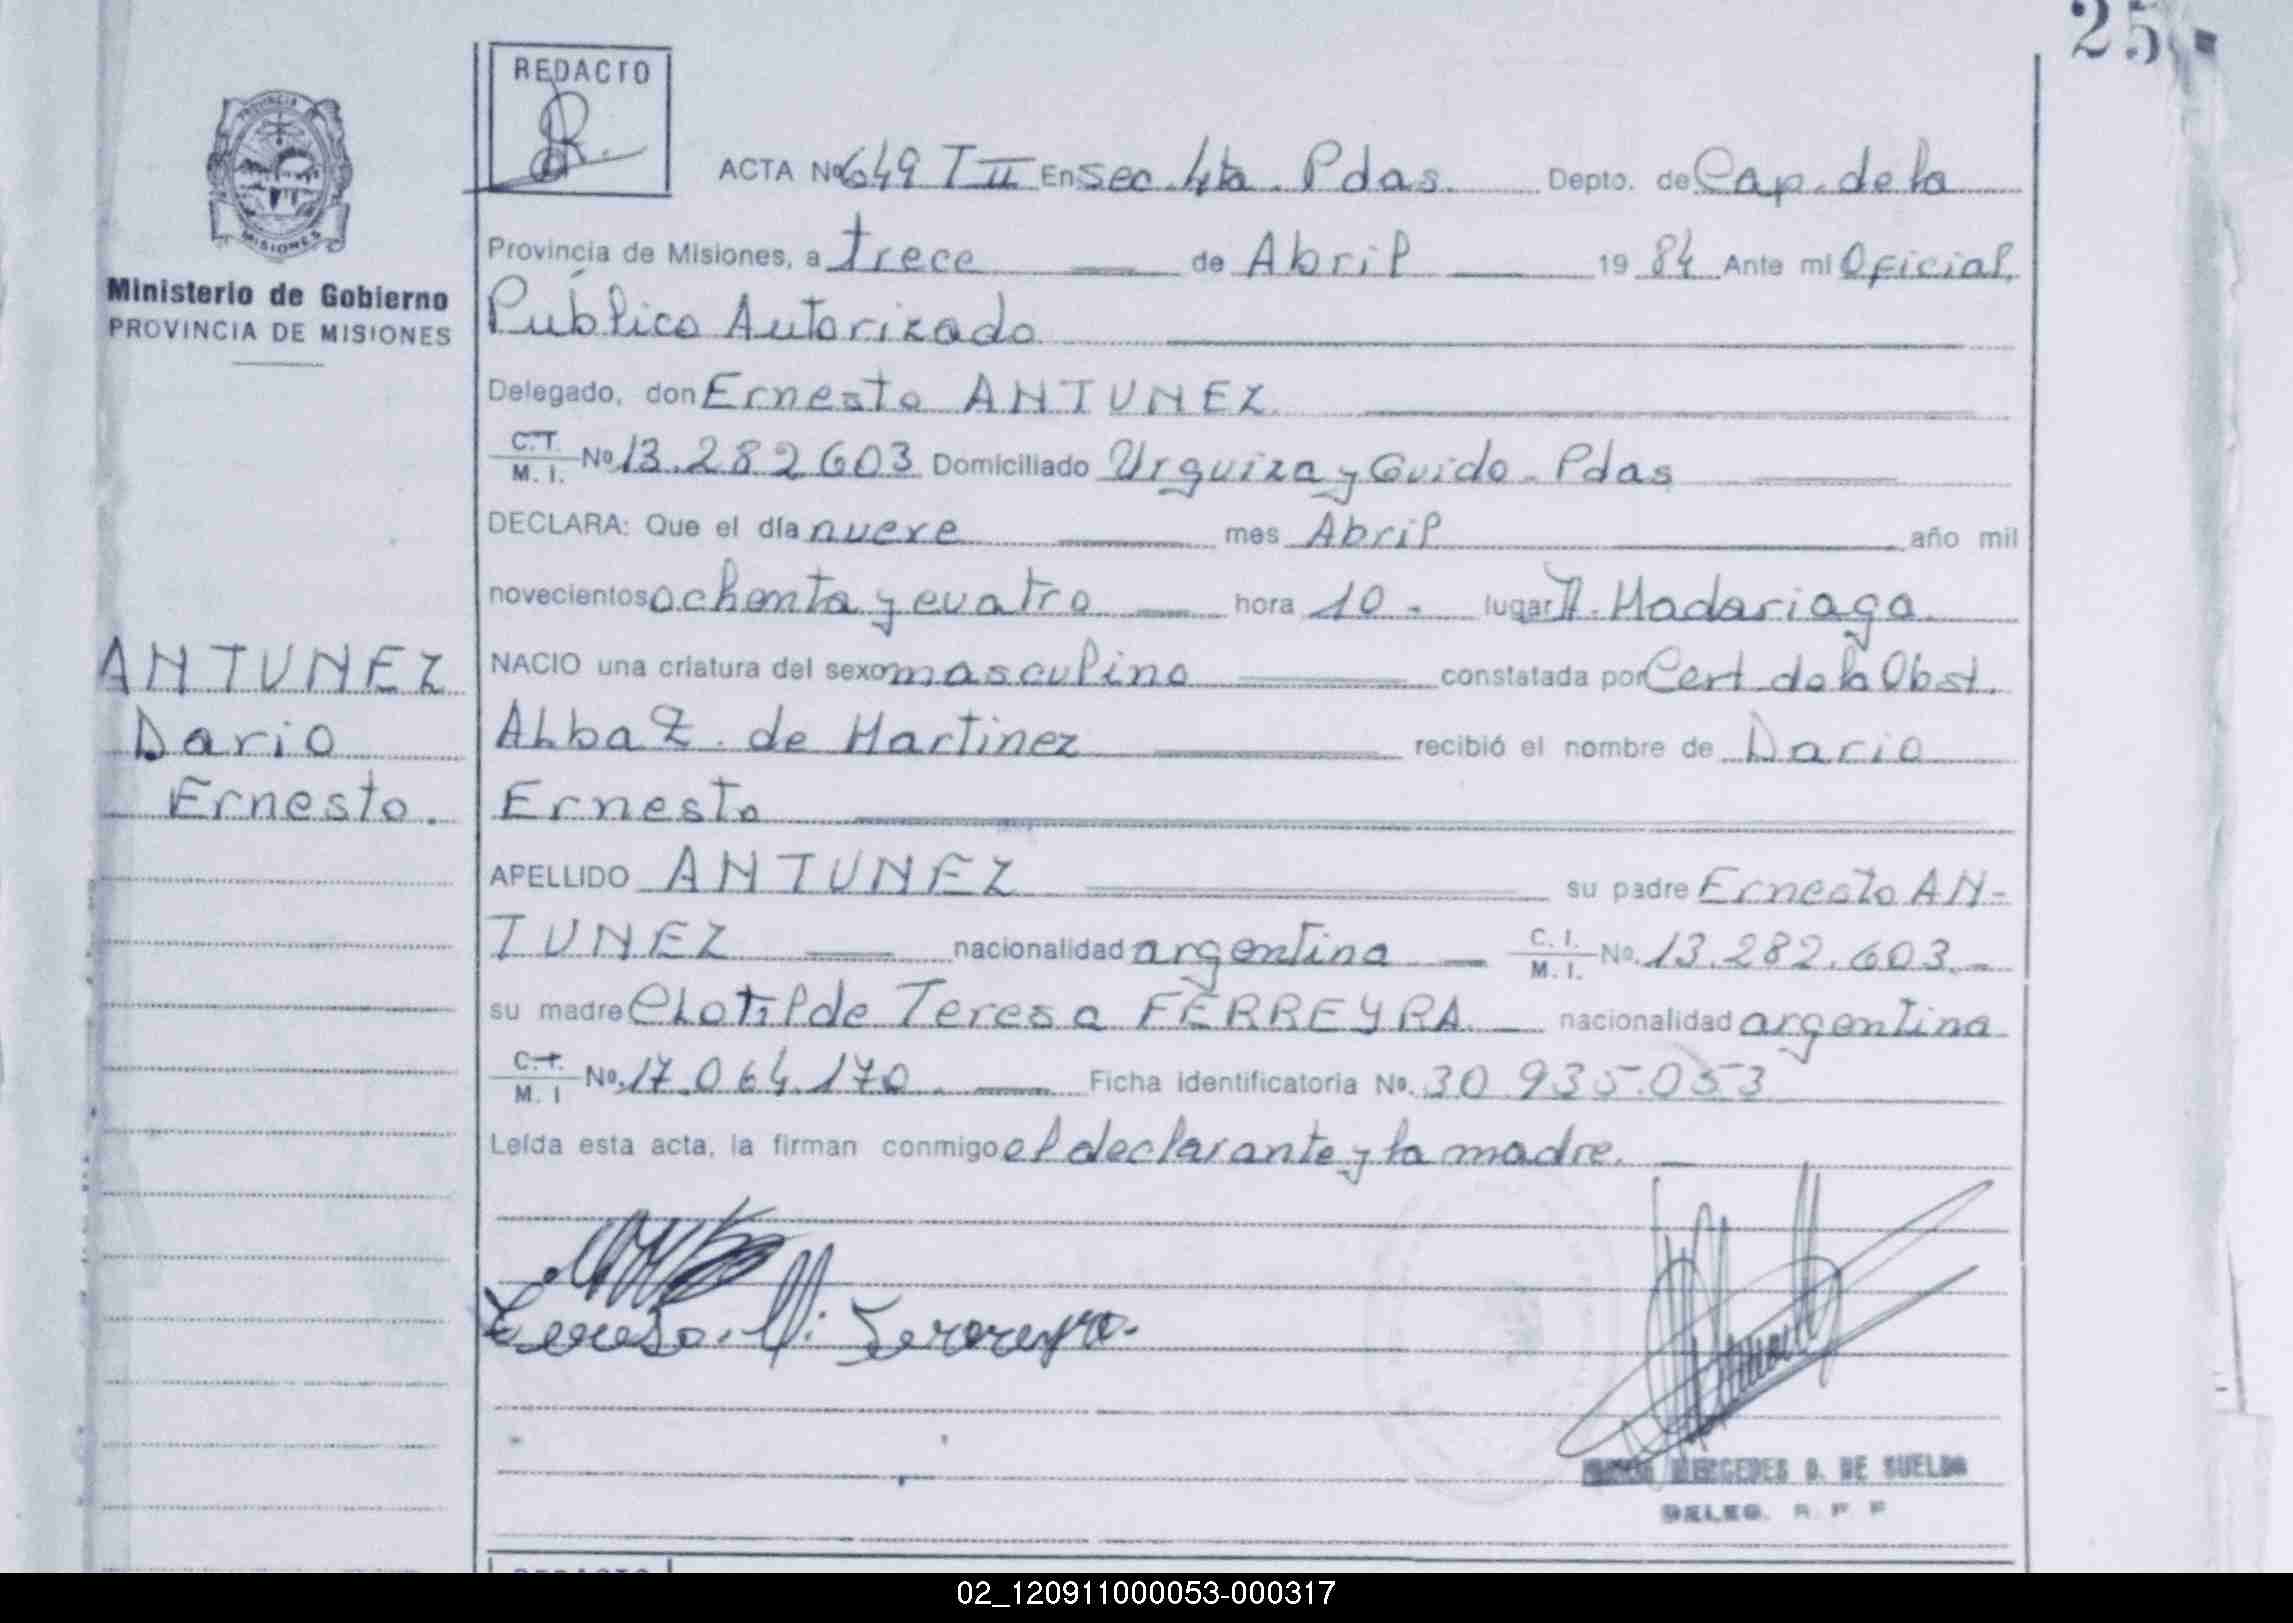 25
REDACTO
PROVINCIA
MISIONES
Ministerio de Gobierno
PROVINCIA DE MISIONES
ACTA Nº 649 T II En Sec. 4ta. Pdas. Depto. de Cap. de la
Provincia de Misiones, a trece de Abril 1984 Ante mi Oficial
Público Autorizado
Delegado, don Ernesto ANTUNEZ
C.I. M. I. Nº 13.282603 Domiciliado Urquiza y Guido - Pdas
DECLARA: Que el día nueve mes Abril año mil
novecientos ochenta y cuatro hora 10. lugar H. Madariaga
NACIO una criatura del sexo masculino constatada por Cert. de la Obst.
Alba Z. de Martinez recibió el nombre de Dario
Ernesto
ANTUNEZ
Dario
Ernesto.
APELLIDO ANTUNEZ su padre Ernesto AN-
TUNEZ nacionalidad argentina C. I. M. I. Nº. 13.282.603.-
su madre Clotilde Teresa FERREYRA. nacionalidad argentina
C.I. M. I Nº. 17.064.170. Ficha identificatoria Nº. 30.935.053
Leída esta acta, la firman conmigo el declarante y la madre.
MERCEDES D. DE SUELDO
DELEG. R. P. P
REDACTO
02_120911000053-000317